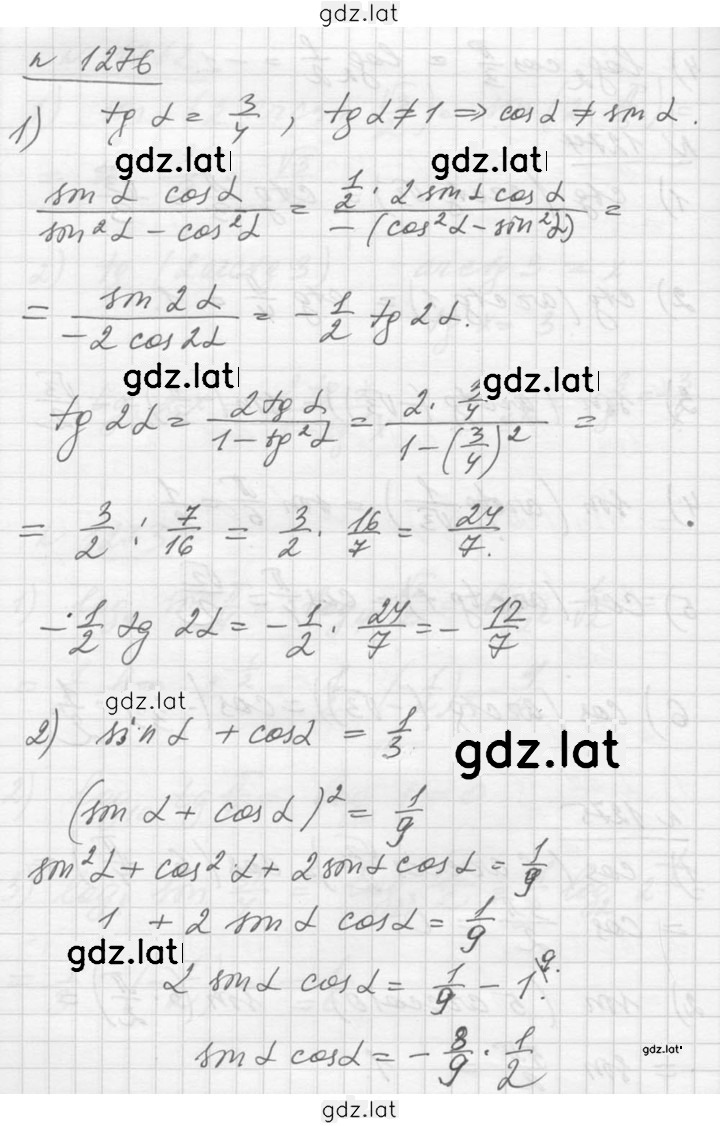 gdz.lat
n 1276
1) tg α = 3/4 , tg α ≠ 1 ⇒ cos α ≠ sin α .
gdz.lat
sin α cos α / (sin² α − cos² α) = 1/2 · 2 sin α cos α / −(cos² α − sin² α) =
= sin 2α / −2 cos 2α = − 1/2 tg 2α.
gdz.lat gdz.lat
tg 2α = 2 tg α / (1 − tg² α) = 2 · 3/4 / (1 − (3/4)²) =
= 3/2 : 7/16 = 3/2 · 16/7 = 24/7.
− 1/2 tg 2α = − 1/2 · 24/7 = − 12/7
gdz.lat
2) sin α + cos α = 1/3
gdz.lat
(sin α + cos α)² = 1/9
sin² α + cos² α + 2 sin α cos α = 1/9
1 + 2 sin α cos α = 1/9
gdz.lat
2 sin α cos α = 1/9 − 1 \9.
sin α cos α = − 8/9 · 1/2
gdz.lat
gdz.lat